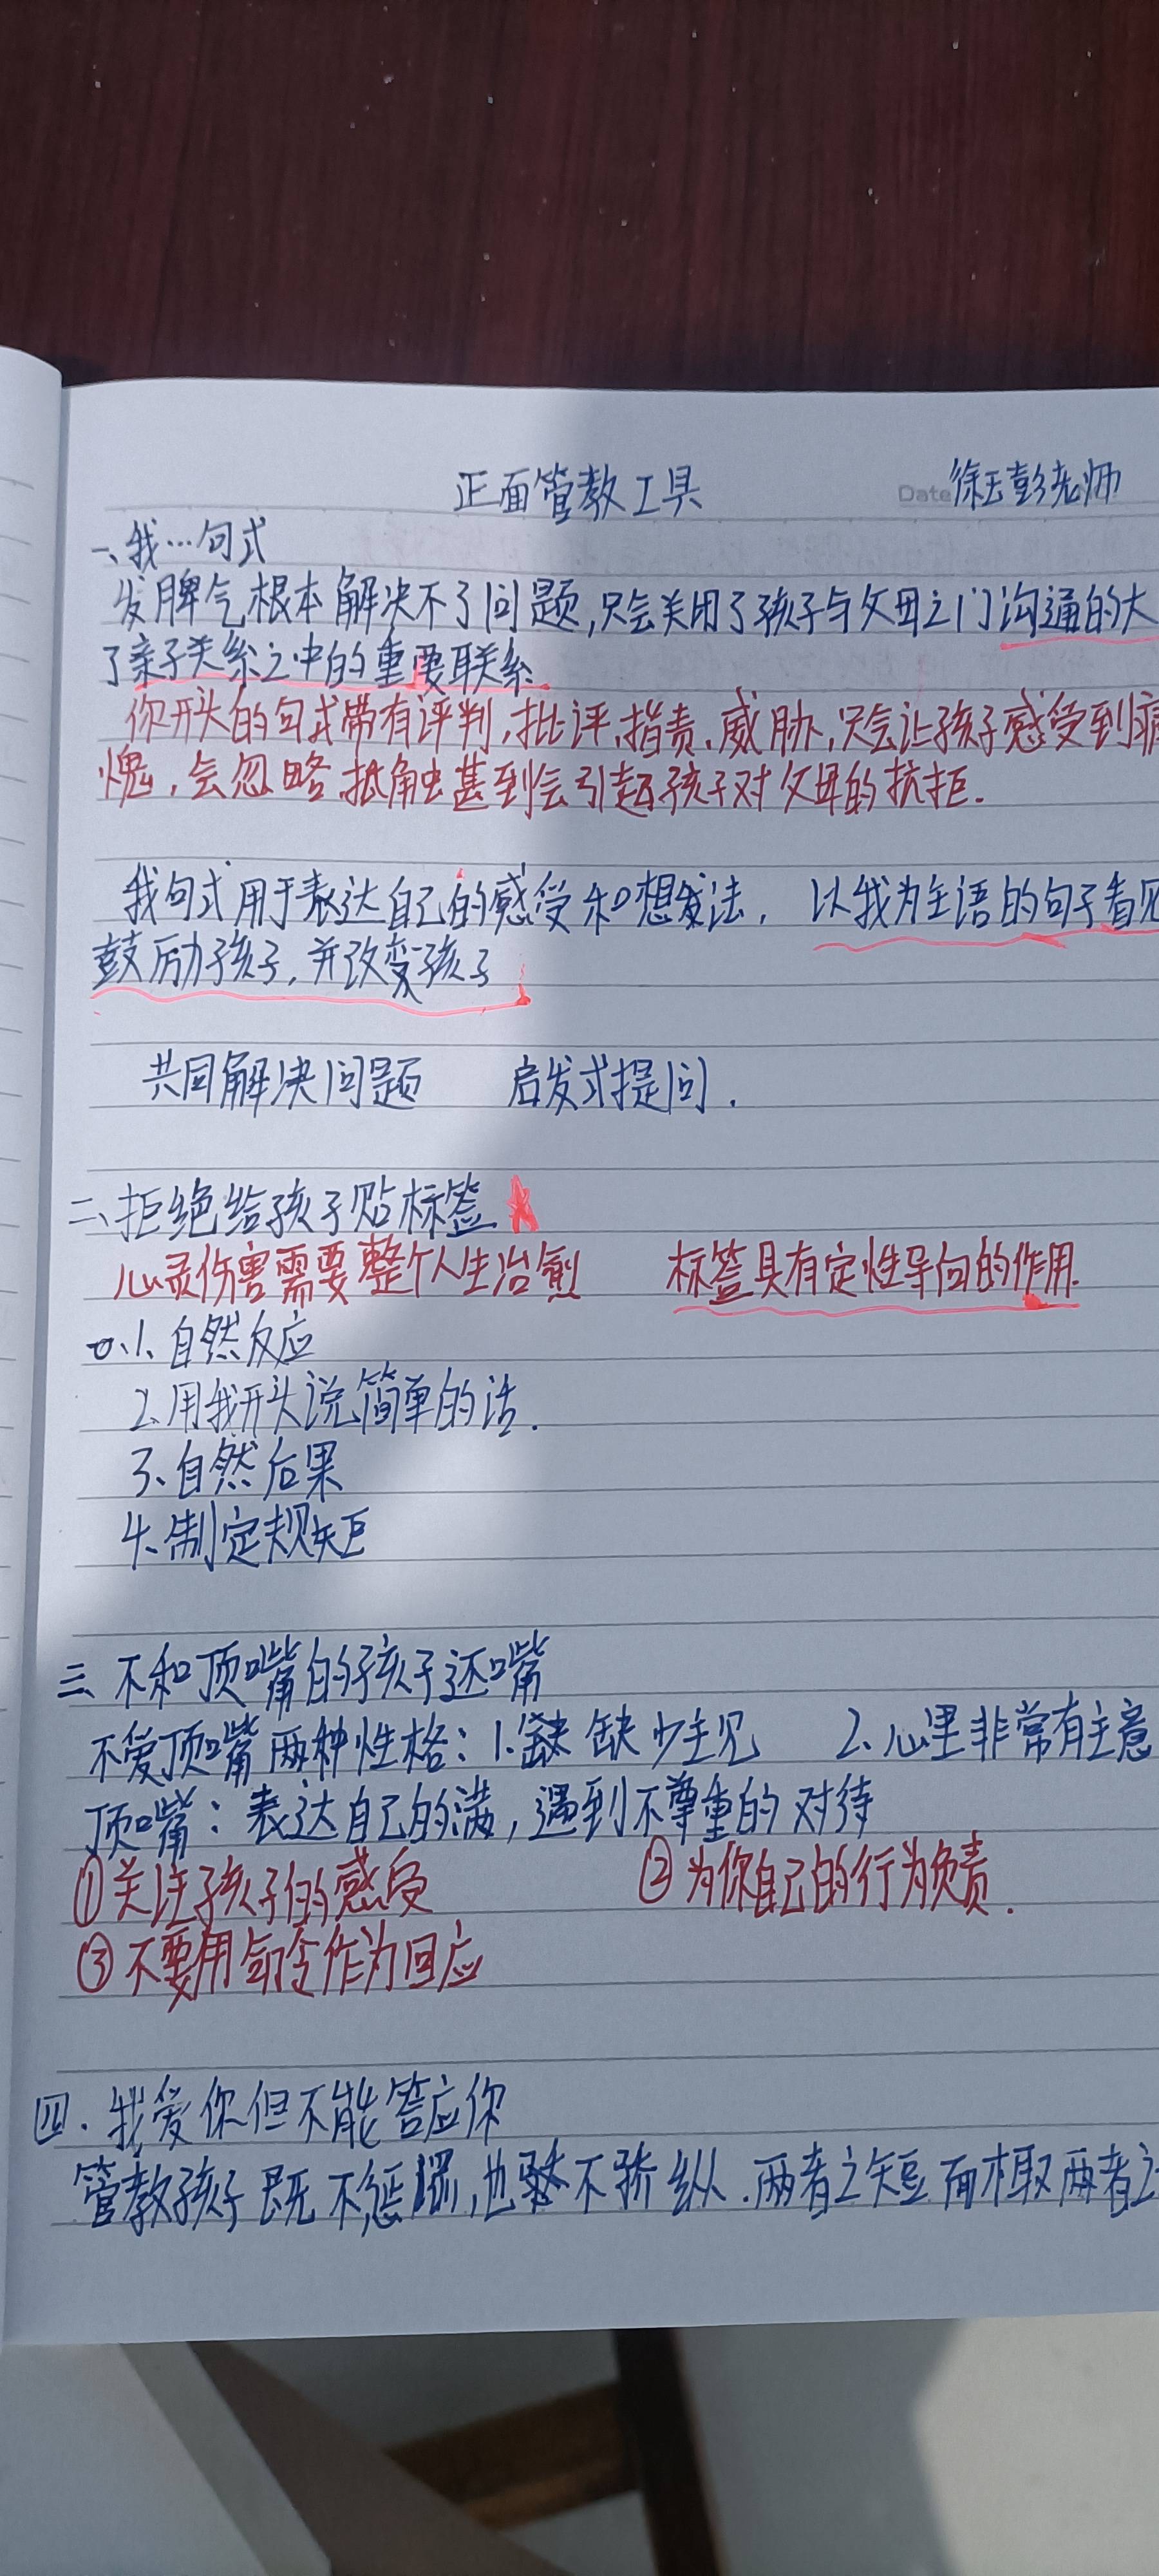 正面管教工具
Date 徐玉彭老师
一、我…句式
发脾气根本解决不了问题,只会关闭了孩子与父母之门沟通的大
了亲子关系之中的重要联系
你开头的句式带有评判,批评,指责、威胁,只会让孩子感受到
愧,会忽略抵触甚到会引起孩子对父母的抗拒.
我句式用于表达自己的感受和想法, 以我为主语的句子看见
鼓励孩子,并改变孩子
共同解决问题 启发式提问.
二、拒绝给孩子贴标签
心灵伤害需要整个人生治愈 标签具有定性导向的作用.
1、自然反应
2、用我开头说简单的话.
3、自然后果
4、制定规矩
三、不和顶嘴的孩子还嘴
不爱顶嘴两种性格:1.缺少主见 2、心里非常有主意
顶嘴:表达自己的满,遇到不尊重的对待
①关注孩子的感受 ②为你自己的行为负责.
③不要用命令作为回应
四.我爱你但不能答应你
管教孩子既不惩罚,也不骄纵.两者之短而取两者之